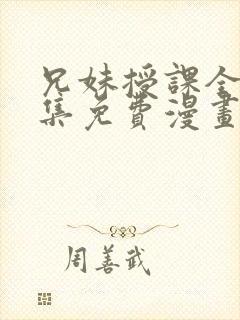 兄妹授課全
集免費漫畫
周善武